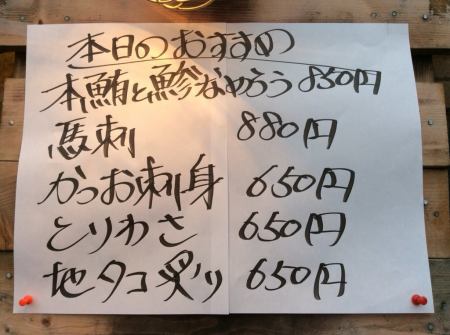 本日のおすすめ
本鮪と鯵なめろう 850円
馬刺 880円
かつお刺身 650円
とりわさ 650円
地タコ炙り 650円